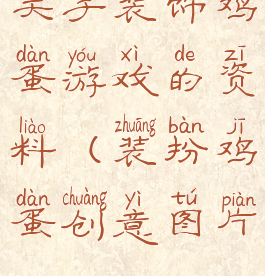 关于装饰鸡
dàn yóu xì de zī
蛋游戏的资
liào zhuāng bàn jī
料（装扮鸡
dàn chuàng yì tú piàn
蛋创意图片